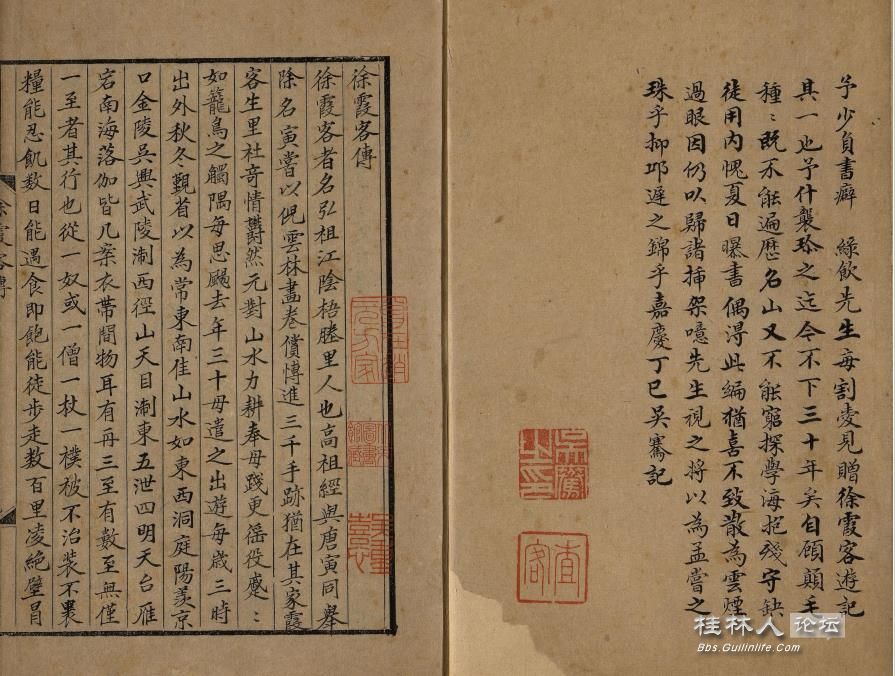 予少負書癖　綠飲先生每割愛見贈徐霞客遊記
其一也予什襲珍之迄今不下三十年矣自顧顛毛
種〻既不能遍歷名山又不能窮探學海抱殘守缺
徒用內愧夏日曝書偶得此編猶喜不致散為雲煙
過眼因仍以歸諸插架噫先生視之將以為孟嘗之
珠乎抑邱遲之錦乎嘉慶丁巳吳騫記
吳騫之印
徐霞客傳
徐霞客者名弘祖江陰梧塍里人也高祖經與唐寅同舉
除名寅嘗以倪雲林畫卷償博進三千手跡猶在其家霞
客生里社奇情鬱然元對山水力耕奉母踐更徭役蹙〻
如籠鳥之觸隅每思颺去年三十母遣之出遊每歲三時
出外秋冬覲省以為常東南佳山水如東西洞庭陽羨京
口金陵吳興武陵淛西徑山天目淛東五泄四明天台雁
宕南海落伽皆几案衣帶間物耳有再三至有數至無僅
一至者其行也從一奴或一僧一杖一襆被不治裝不裹
糧能忍飢數日能遇食即飽能徒步走數百里凌絕壁冒
徐霞客傳
桂林人论坛
Bbs.Guilinlife.com